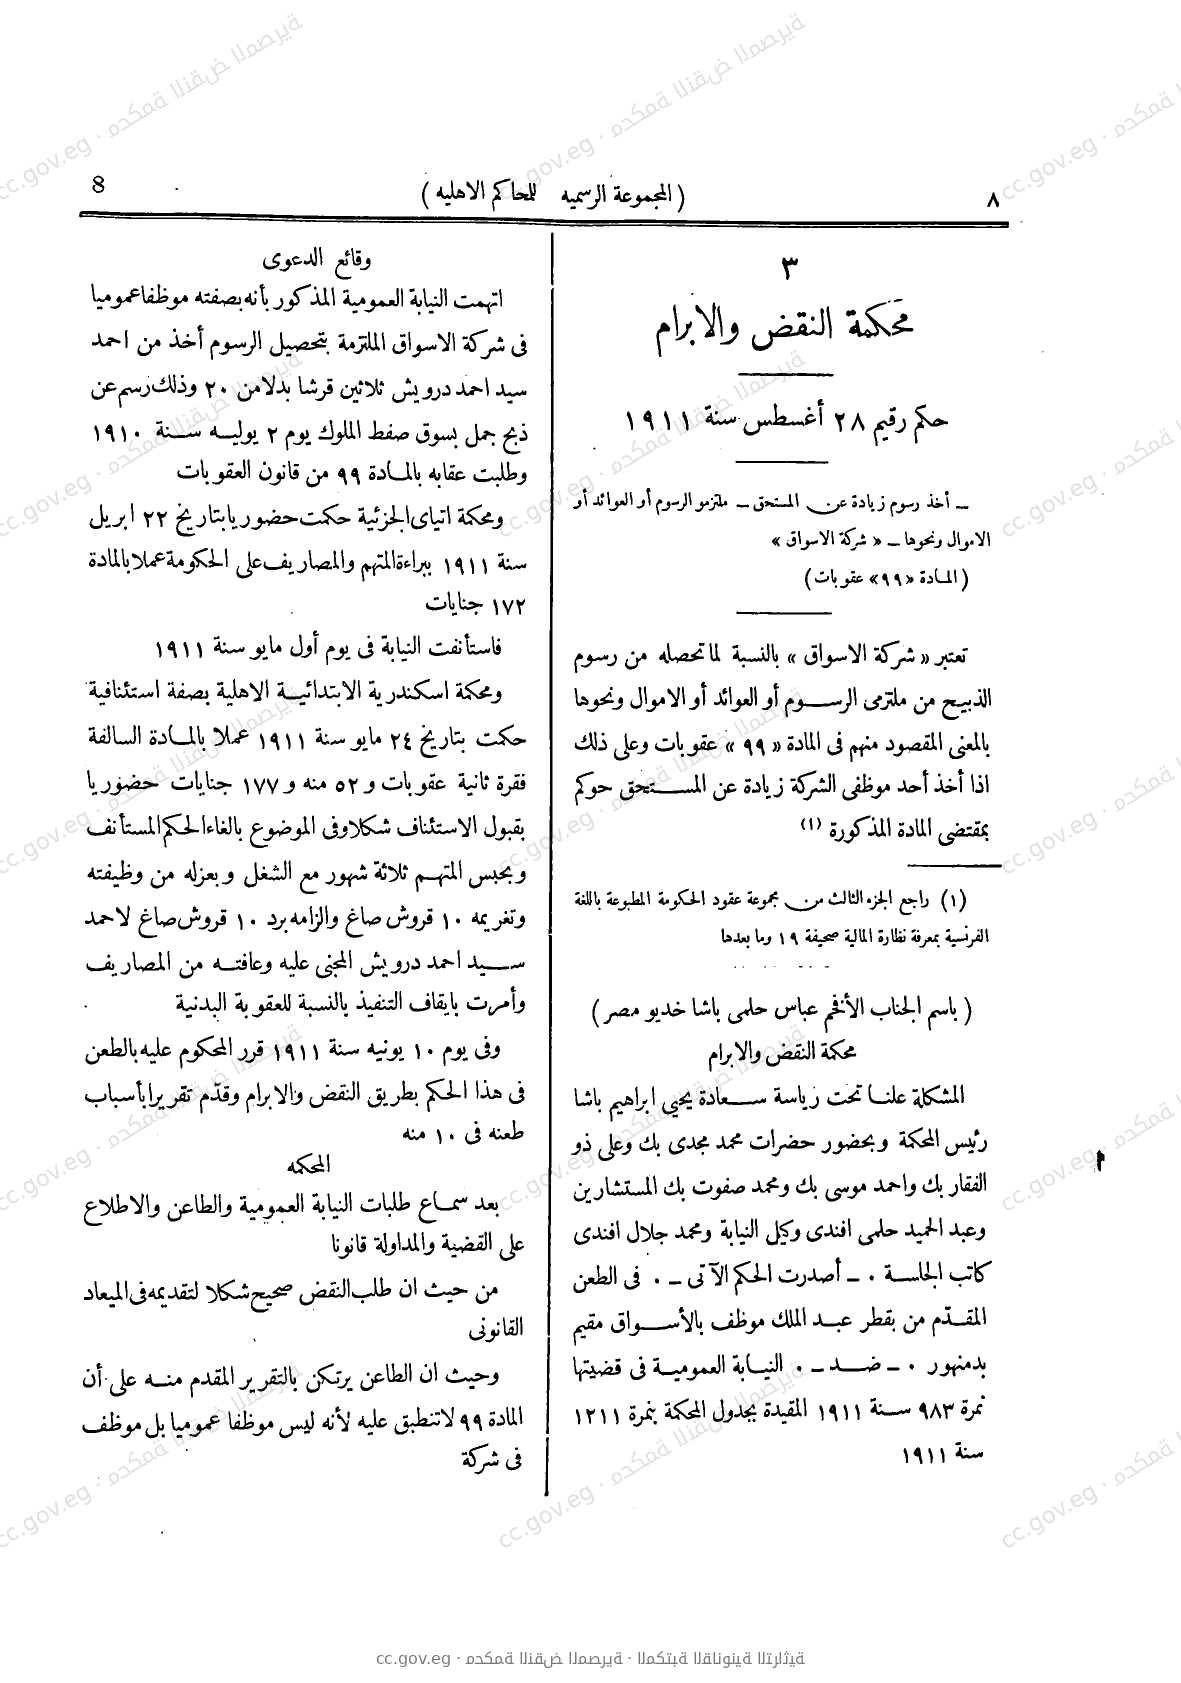 ٨
(المجموعة الرسميه للمحاكم الاهليه)
8
٣
محكمة النقض والابرام
حكم رقيم ٢٨ أغسطس سنة ١٩١١
ـ أخذ رسوم زيادة عن المستحق ـ ملتزمو الرسوم أو العوائد أو
الاموال ونحوها ـ « شركة الاسواق »
(المادة «٩٩» عقوبات)
تعتبر « شركة الاسواق » بالنسبة لما تحصله من رسوم
الذبيح من ملتزمى الرسوم أو العوائد أو الاموال ونحوها
بالمعنى المقصود منهم فى المادة « ٩٩ » عقوبات وعلى ذلك
اذا أخذ أحد موظفى الشركة زيادة عن المستحق حوكم
بمقتضى المادة المذكورة (١)
(١) راجع الجزء الثالث من مجموعة عقود الحكومة المطبوعة باللغة
الفرنسية بمعرفة نظارة المالية صحيفة ١٩ وما بعدها
(باسم الجناب الأفخم عباس حلمى باشا خديو مصر)
محكمة النقض والابرام
المشكلة علنا تحت رياسة سعادة يحيى ابراهيم باشا
رئيس المحكمة وبحضور حضرات محمد مجدى بك وعلى ذو
الفقار بك واحمد موسى بك ومحمد صفوت بك المستشارين
وعبد الحميد حلمى افندى وكيل النيابة ومحمد جلال افندى
كاتب الجلسة ٠ ـ أصدرت الحكم الآتى ـ ٠ فى الطعن
المقدّم من بقطر عبد الملك موظف بالأسواق مقيم
بدمنهور ٠ ـ ضد ـ ٠ النيابة العمومية فى قضيتها
نمرة ٩٨٣ سنة ١٩١١ المقيدة بجدول المحكمة بنمرة ١٢١١
سنة ١٩١١
وقائع الدعوى
اتهمت النيابة العمومية المذكور بأنه بصفته موظفا عموميا
فى شركة الاسواق الملتزمة بتحصيل الرسوم أخذ من احمد
سيد احمد درويش ثلاثين قرشا بدلا من ٢٠ وذلك رسم عن
ذبح جمل بسوق صفط الملوك يوم ٢ يوليه سنة ١٩١٠
وطلبت عقابه بالمادة ٩٩ من قانون العقوبات
ومحكمة اتياى الجزئية حكمت حضوريا بتاريخ ٢٢ ابريل
سنة ١٩١١ ببراءة المتهم والمصاريف على الحكومة عملا بالمادة
١٧٢ جنايات
فاستأنفت النيابة فى يوم أول مايو سنة ١٩١١
ومحكمة اسكندرية الابتدائية الاهلية بصفة استئنافية
حكمت بتاريخ ٢٤ مايو سنة ١٩١١ عملا بالمادة السالفة
فقرة ثانية عقوبات و ٥٢ منه و ١٧٧ جنايات حضوريا
بقبول الاستئناف شكلا وفى الموضوع بالغاء الحكم المستأنف
وبحبس المتهم ثلاثة شهور مع الشغل وبعزله من وظيفته
وتغريمه ١٠ قروش صاغ والزامه برد ١٠ قروش صاغ لاحمد
سيد احمد درويش المجنى عليه وعافته من المصاريف
وأمرت بايقاف التنفيذ بالنسبة للعقوبة البدنية
وفى يوم ١٠ يونيه سنة ١٩١١ قرر المحكوم عليه بالطعن
فى هذا الحكم بطريق النقض والابرام وقدّم تقريرا بأسباب
طعنه فى ١٠ منه
المحكمه
بعد سماع طلبات النيابة العمومية والطاعن والاطلاع
على القضية والمداولة قانونا
من حيث ان طلب النقض صحيح شكلا لتقديمه فى الميعاد
القانونى
وحيث ان الطاعن يرتكن بالتقرير المقدم منه على أن
المادة ٩٩ لا تنطبق عليه لأنه ليس موظفا عموميا بل موظف
فى شركة
cc.gov.eg · محكمة النقض المصرية · المكتبة القانونية التراثية